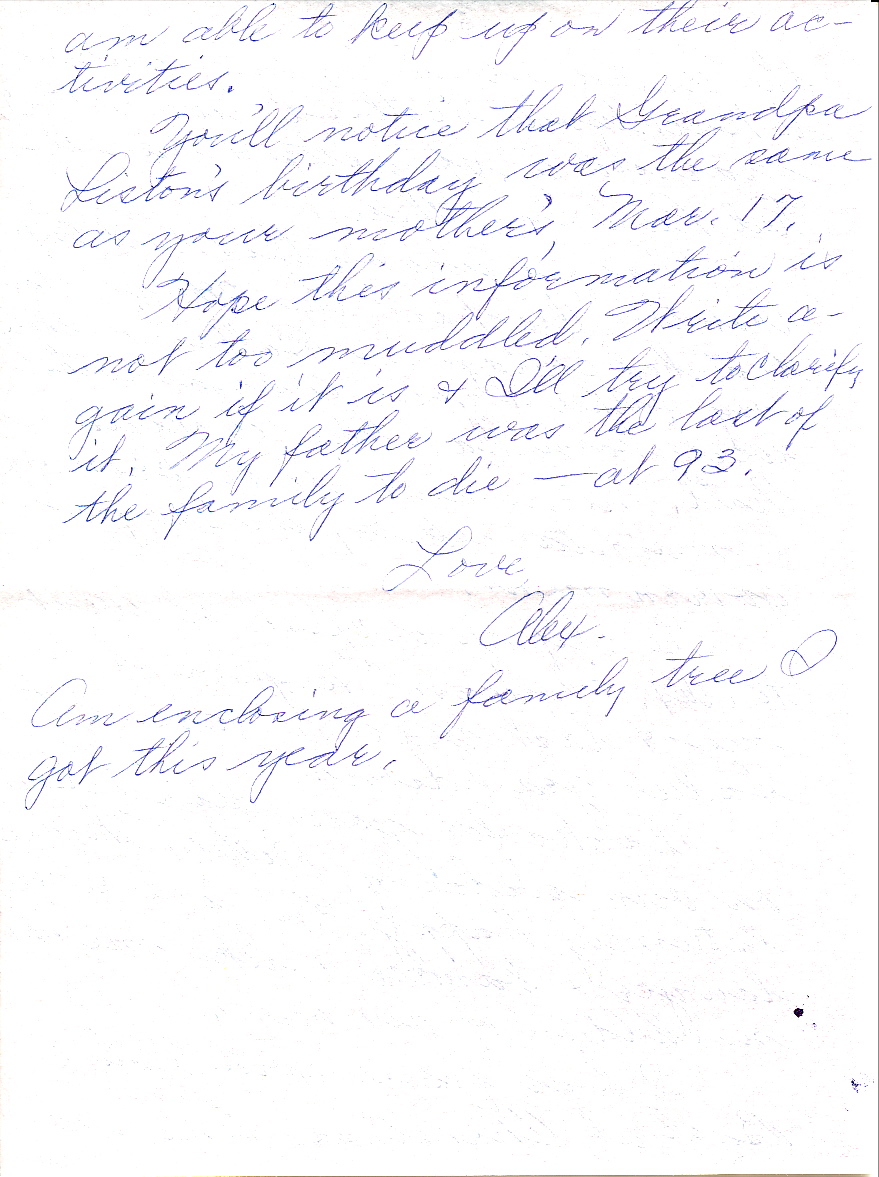 am able to keep up on their ac-
tivities.
You'll notice that Grandpa
Liston's birthday was the same
as your mother's, Mar. 17.
Hope this information is
not too muddled. Write a-
gain if it is & I'll try to clarify
it. My father was the last of
the family to die — at 93.
Love,
Alex.
Am enclosing a family tree I
got this year.